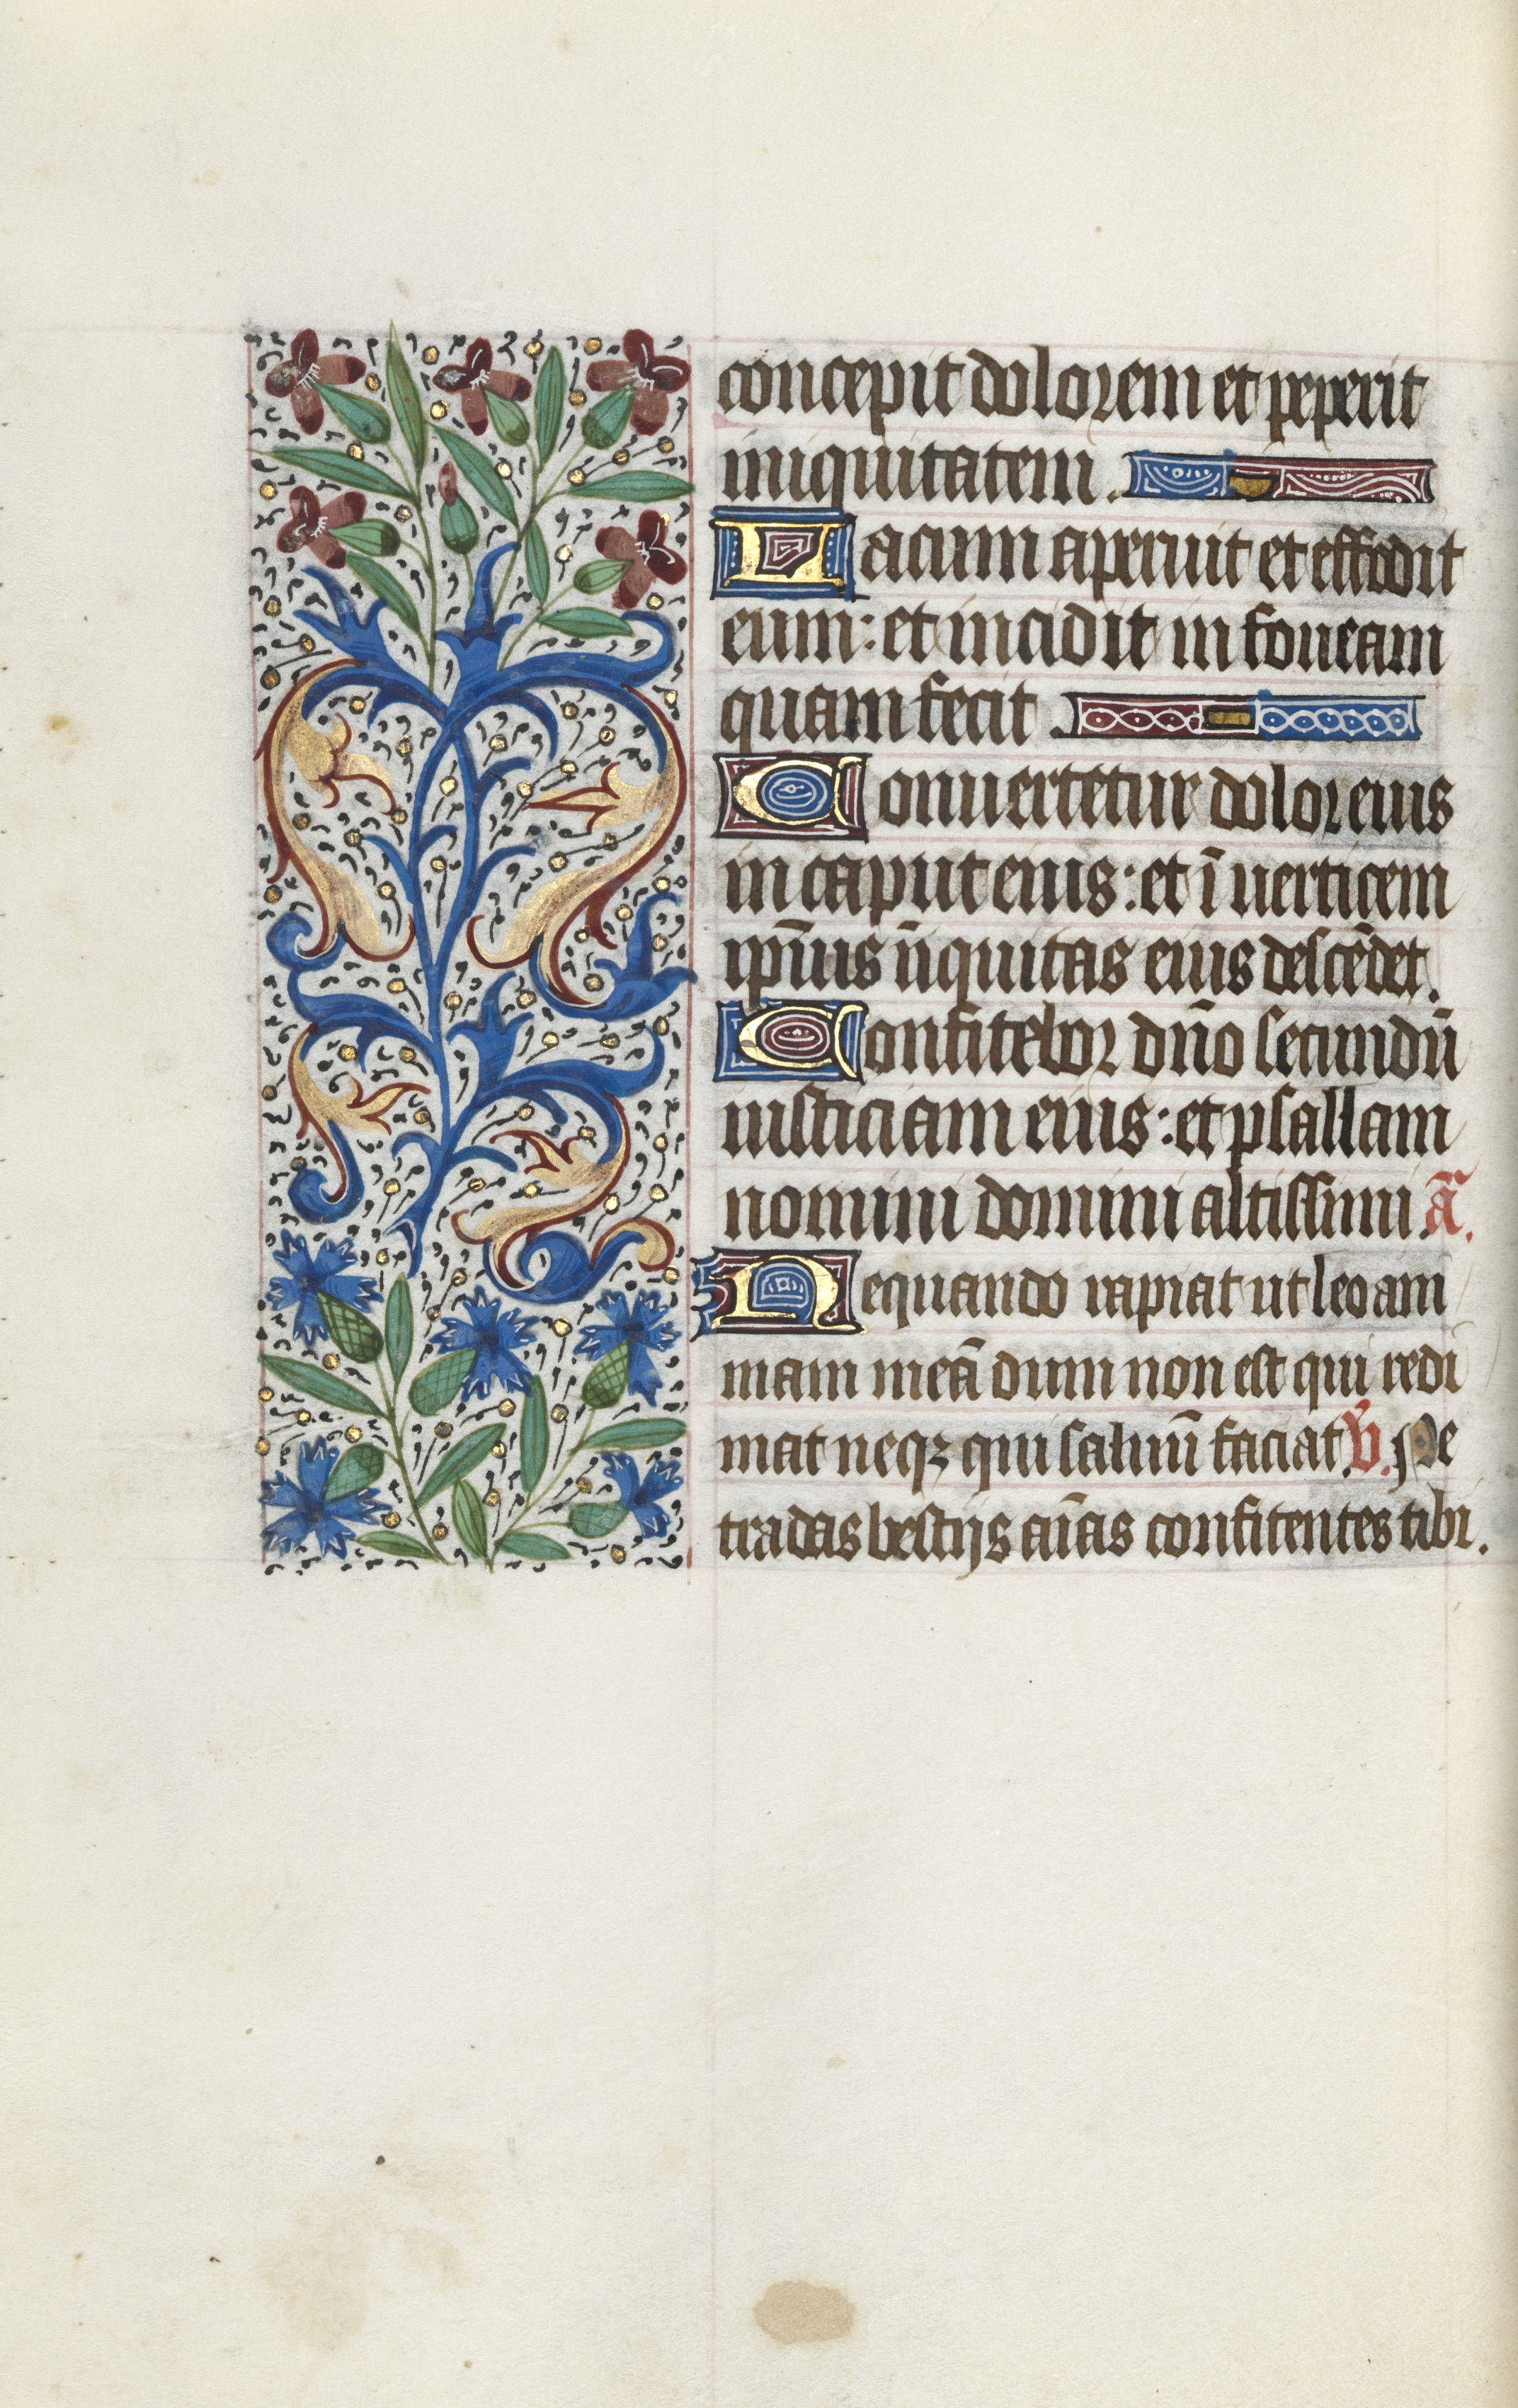 concepit dolorem et peperit
iniquitatem.
Lacum aperuit et effodit
eum: et incidit in foueam
quam fecit.
Conuertetur dolor eius
in caput eius: et ī uerticem
ip̄ius īiquitas eius descēdet.
Confitebor dño secundū
iusticiam eius: et psallam
nomini domini altissimi. ā.
Nequando rapiat ut leo ani
mam meā dum non est qui redi
mat neqꝫ qui saluū faciat. V. Ne
tradas bestijs aīas confitentes tibi.